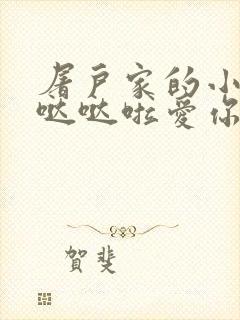 屠户家的小
哒哒啦爱你
賀斐